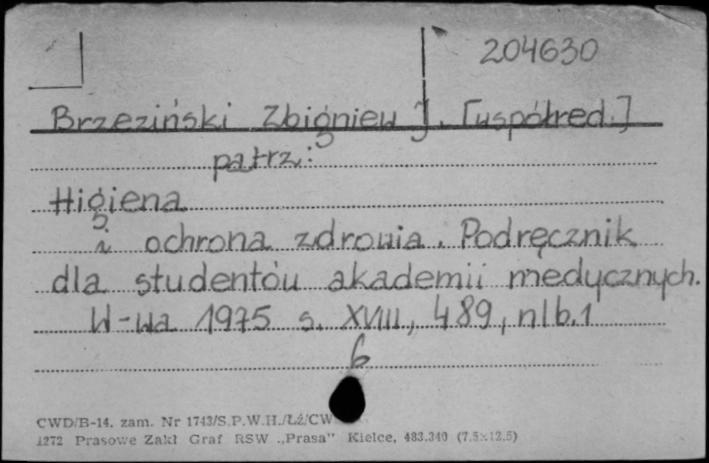 204630
Brzeziński Zbigniew J. [współred.]
patrz:
Higiena
i ochrona zdrowia. Podręcznik
dla studentów akademii medycznych.
W-wa 1975 s. XVIII, 489, nlb.1
b
CWD/B-14. zam. Nr 1743/S.P.W.H./Łź/CW
1272 Prasowe Zakł Graf RSW „Prasa" Kielce, 483.340 (7.5×12.5)